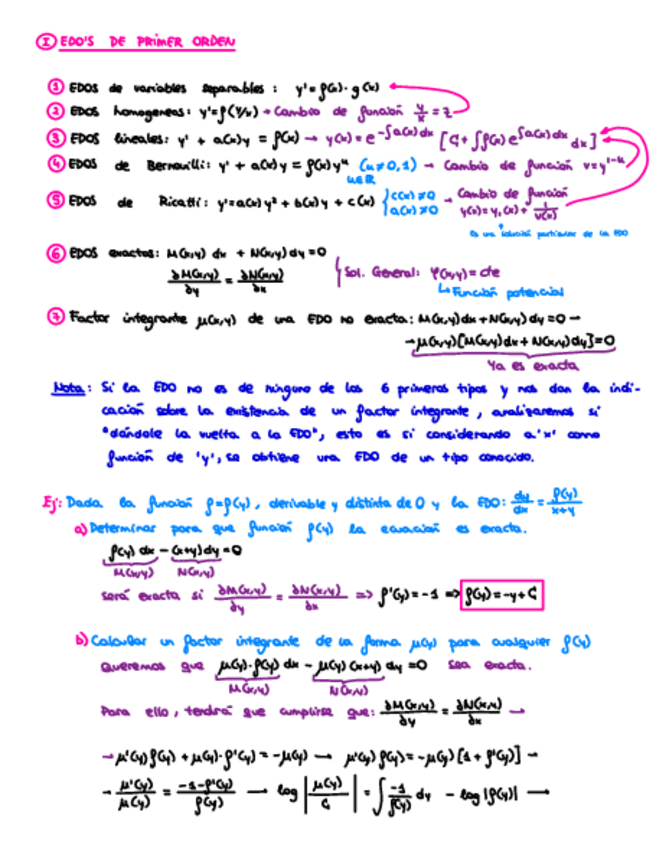 I EDO'S DE PRIMER ORDEN
1 EDOS de variables separables : y' = f(x) · g(x)
2 EDOS homogeneas: y' = f(y/x) → Cambio de función y/x = z
3 EDOS lineales: y' + a(x)y = f(x) → y(x) = e^{-∫a(x)dx} [C + ∫f(x) e^{∫a(x)dx} dx]
4 EDOS de Bernouilli: y' + a(x)y = f(x)y^n (n≠0,1) n∈ℝ → Cambio de función v=y^{1-n}
5 EDOS de Ricatti: y' = a(x)y² + b(x)y + c(x) { c(x)≠0 a(x)≠0 → Cambio de función y(x) = y₁(x) + 1/v(x)
Es una solución particular de la EDO
6 EDOS exactas: M(x,y) dx + N(x,y) dy = 0
∂M(x,y)/∂y = ∂N(x,y)/∂x { Sol. General: φ(x,y) = cte
↳ Función potencial
7 Factor integrante μ(x,y) de una EDO no exacta: M(x,y)dx + N(x,y)dy = 0 →
→ μ(x,y)[M(x,y)dx + N(x,y)dy] = 0
Ya es exacta
Nota: Si la EDO no es de ninguno de los 6 primeros tipos y nos dan la indi-
cación sobre la existencia de un factor integrante, analizaremos si
"dándole la vuelta a la EDO", esto es si considerando a 'x' como
función de 'y', se obtiene una EDO de un tipo conocido.
Ej: Dada la función f=f(y), derivable y distinta de 0 y la EDO: dy/dx = f(y)/x+y
a) Determinar para que función f(y) la ecuación es exacta.
f(y) dx - (x+y) dy = 0
M(x,y) N(x,y)
será exacta si ∂M(x,y)/∂y = ∂N(x,y)/∂x => f'(y) = -1 => f(y) = -y + C
b) Calcular un factor integrante de la forma μ(y) para cualquier f(y)
Queremos que μ(y)·f(y) dx - μ(y)(x+y) dy = 0 sea exacta.
M(x,y) N(x,y)
Para ello, tendrá que cumplirse que: ∂M(x,y)/∂y = ∂N(x,y)/∂x →
→ μ'(y) f(y) + μ(y)· f'(y) = -μ(y) → μ'(y) f(y) = -μ(y) [1 + f'(y)] →
→ μ'(y)/μ(y) = -1-f'(y)/f(y) → log |μ(y)/C| = ∫ -1/f(y) dy - log |f(y)| →